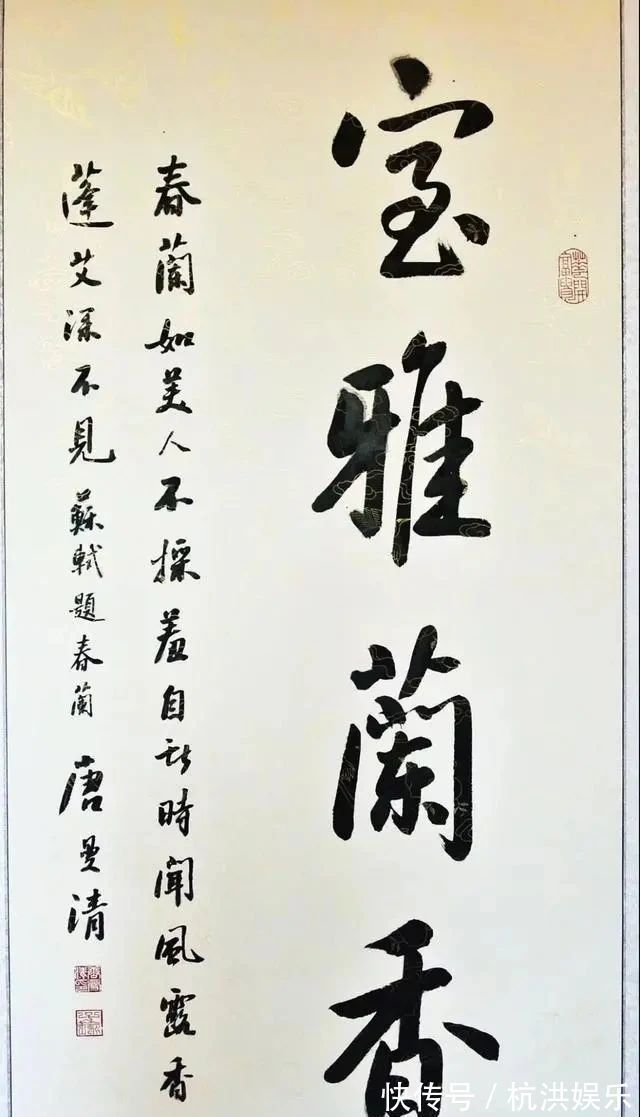 室雅蘭香
春蘭如美人不採羞自獻時聞風露香
蓬艾深不見蘇軾題春蘭
唐曼清
快传号/杭洪娱乐